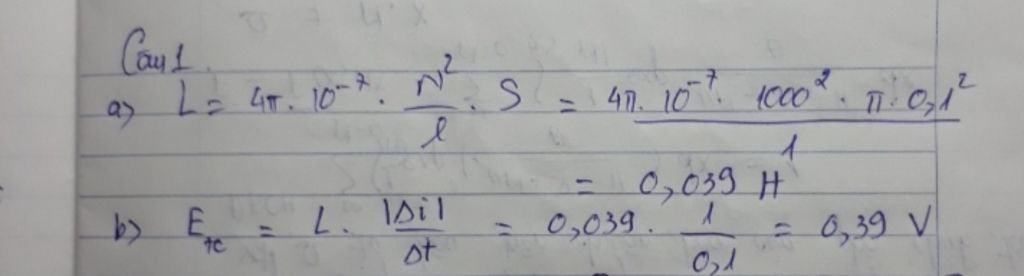 Câu 1.
a) L = 4π. 10⁻⁷ . N²/l . S = 4π. 10⁻⁷ . 1000² . π. 0,1² / 1
= 0,039 H
b) Etc = L. |Δi|/Δt = 0,039. 1/0,1 = 0,39 V